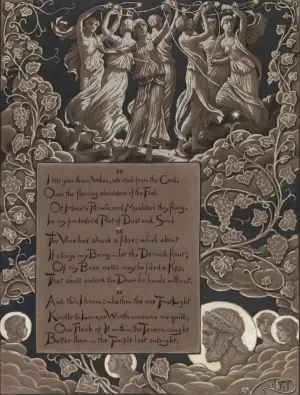 54
I tell you this—When, started from the Goal,
Over the flaming shoulders of the Foal
Of Heav'n Parwin and Mushtari they flung,
In my predestin'd Plot of Dust and Soul
55
The Vine had struck a fibre: which about
If clings my Being—let the Dervish flout;
Of my Base metal may be filed a Key,
That shall unlock the Door he howls without.
56
And this I know: whether the one True Light
Kindle to Love, or Wrath-consume me quite,
One Flash of It within the Tavern caught
Better than in the Temple lost outright.